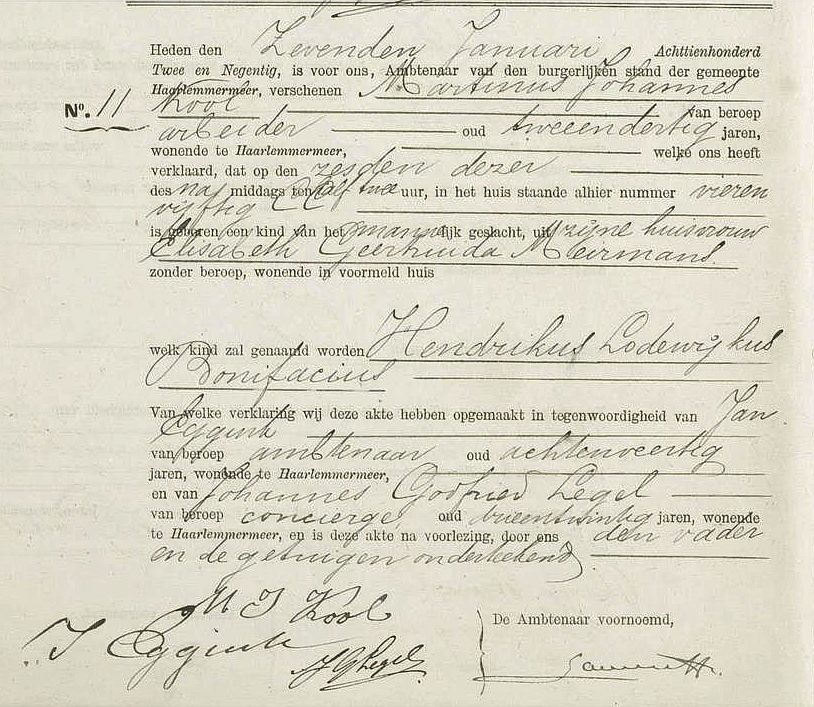 Heden den Zevenden Januari Achttienhonderd
Twee en Negentig, is voor ons, Ambtenaar van den burgerlijken stand der gemeente
Haarlemmermeer, verschenen Martinus Johannes
No. 11
Kool van beroep
arbeider oud tweeendertig jaren,
wonende te Haarlemmermeer, welke ons heeft
verklaard, dat op den zesden dezer
des na middags ten half twee uur, in het huis staande alhier nummer vieren
vijftig
is geboren een kind van het mannelijk geslacht, uit zijne huisvrouw
Elisabeth Geertruida Meirmans
zonder beroep, wonende in voormeld huis
welk kind zal genaamd worden Hendrikus Lodewijkus
Bonifacius
Van welke verklaring wij deze akte hebben opgemaakt in tegenwoordigheid van Jan
Eggink
van beroep ambtenaar oud achtenveertig
jaren, wonende te Haarlemmermeer,
en van Johannes Godfried Legel
van beroep concierge, oud jaren, wonende
te Haarlemmermeer, en is deze akte na voorlezing, door ons den vader
en de getuigen onderteekend
M J Kool
J Eggink
J G Legel
De Ambtenaar voornoemd,